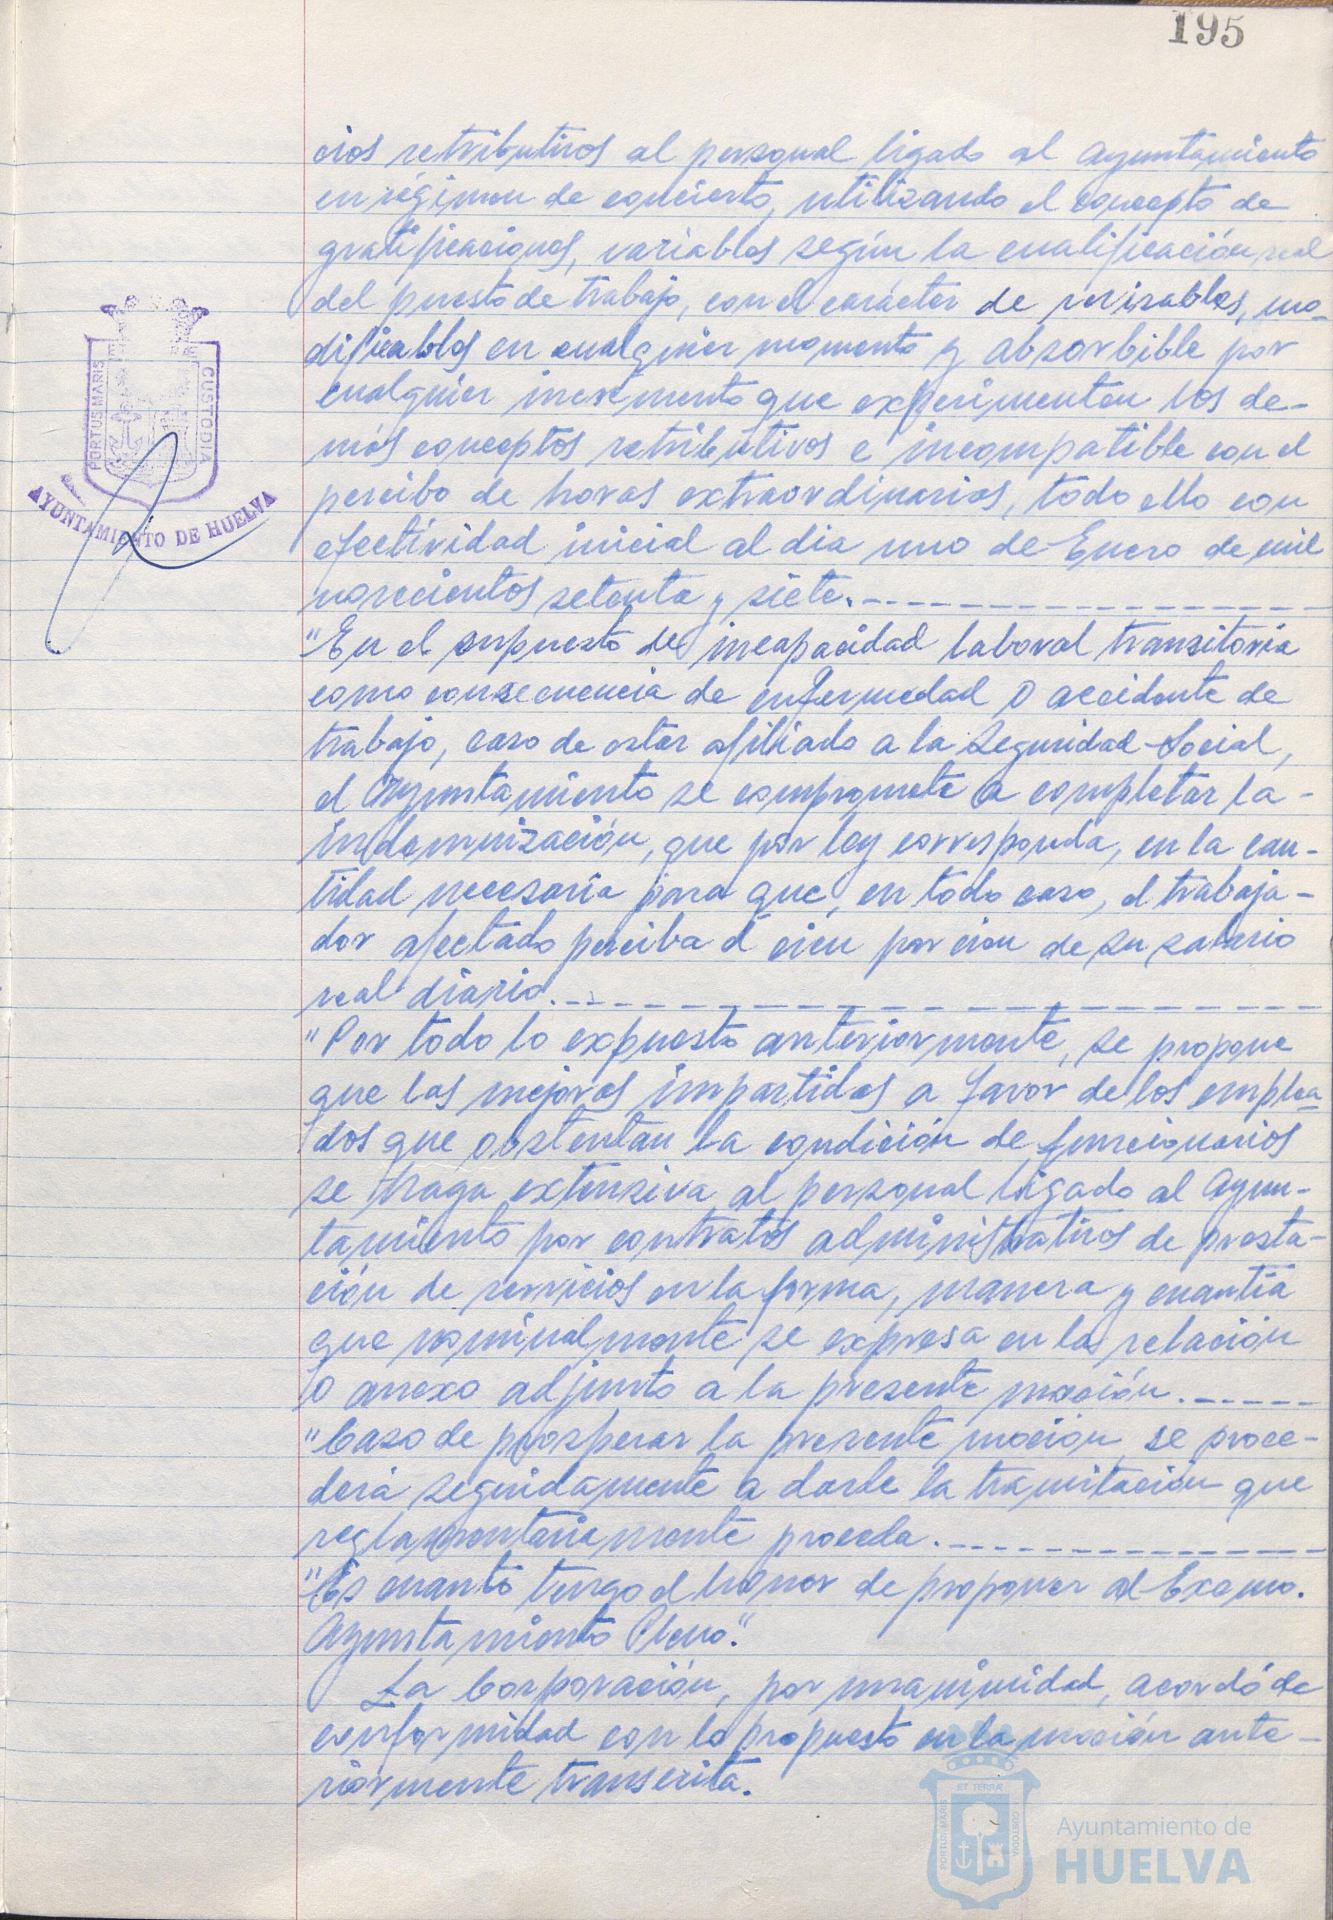 195
cios retributivos al personal ligado al Ayuntamiento
en régimen de concierto, utilizando el concepto de
gratificaciones, variables según la cualificación real
del puesto de trabajo, con el carácter de revisables, mo-
dificables en cualquier momento y absorbible por
cualquier incremento que experimenten los de-
más conceptos retributivos e incompatible con el
percibo de horas extraordinarias, todo ello con
efectividad inicial al dia uno de Enero de mil
novecientos setenta y siete.
"En el supuesto de incapacidad laboral transitoria
como consecuencia de enfermedad o accidente de
trabajo, caso de estar afiliado a la Seguridad Social,
el Ayuntamiento se compromete a completar la
indemnización, que por ley corresponda, en la can-
tidad necesaria para que, en todo caso, el trabaja-
dor afectado perciba el cien por cien de su salario
real diario.
"Por todo lo expuesto anteriormente, se propone
que las mejoras impartidas a favor de los emplea-
dos que obstentan la condición de funcionarios
se haga extensiva al personal ligado al Ayun-
tamiento por contratos administrativos de presta-
ción de servicios en la forma, manera y cuantía
que nominalmente se expresa en la relación
o anexo adjunto a la presente moción.
"Caso de prosperar la presente moción se proce-
derá seguidamente a darle la tramitación que
reglamentariamente proceda.
"Es cuanto tengo el honor de proponer al Excmo.
Ayuntamiento Pleno".
La Corporación, por unanimidad, acordó de
conformidad con lo propuesto en la moción ante-
riormente transcrita.
PORTUS MARIS
CUSTODIA
AYUNTAMIENTO DE HUELVA
ET TERRAE
PORTUS MARIS
CUSTODIA
Ayuntamiento de
HUELVA